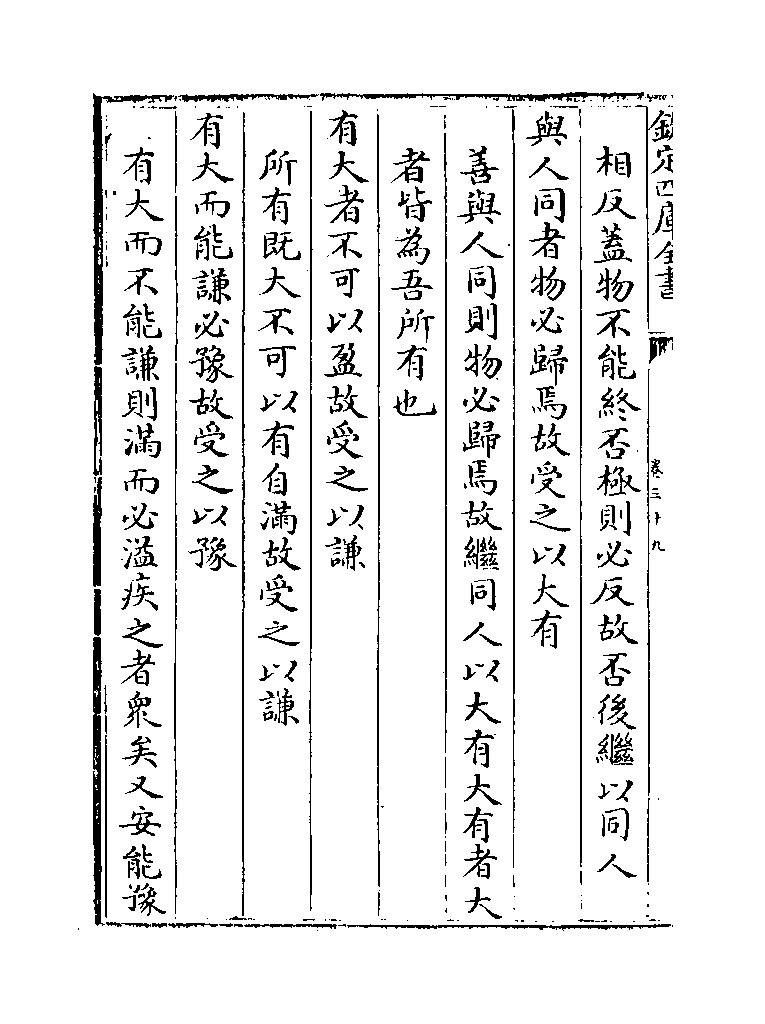 欽定四庫全書
卷三十九
相反蓋物不能終否極則必反故否後繼以同人
與人同者物必歸焉故受之以大有
善與人同則物必歸焉故繼同人以大有大有者大
者皆為吾所有也
有大者不可以盈故受之以謙
所有既大不可以有自滿故受之以謙
有大而能謙必豫故受之以豫
有大而不能謙則滿而必溢疾之者衆矣又安能豫